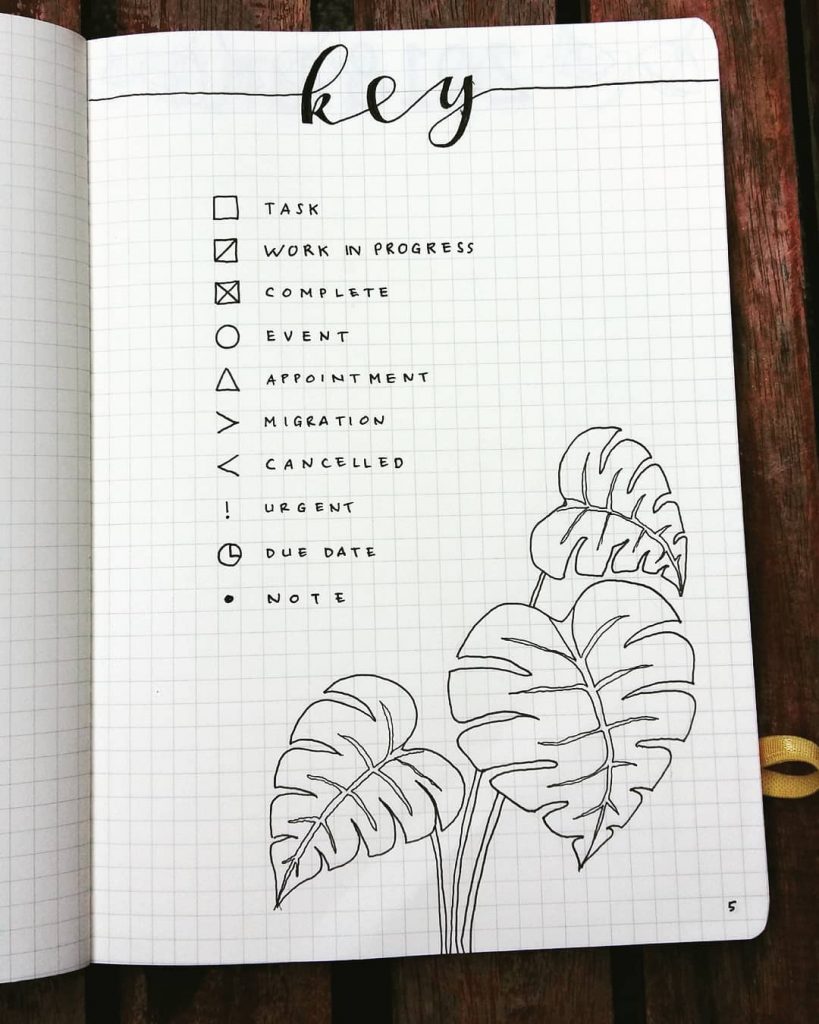 key
TASK
WORK IN PROGRESS
COMPLETE
EVENT
APPOINTMENT
MIGRATION
CANCELLED
! URGENT
DUE DATE
• NOTE
5